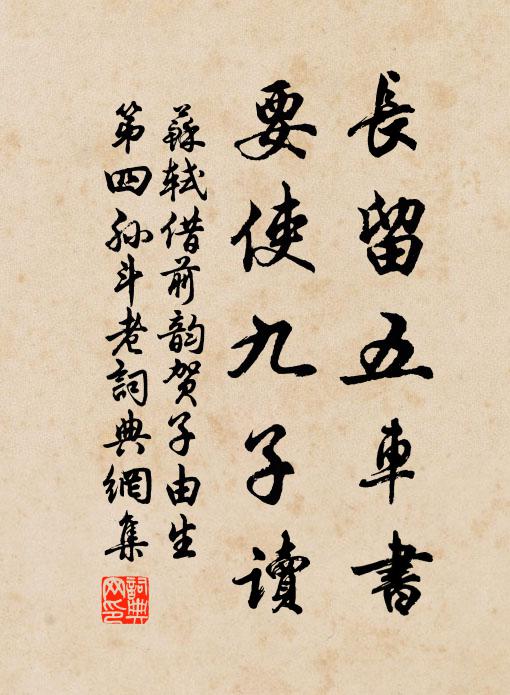 長留五車書
要使九子讀
蘇軾借前韵賀子由生
第四孫斗老詞典網集
詞典網印